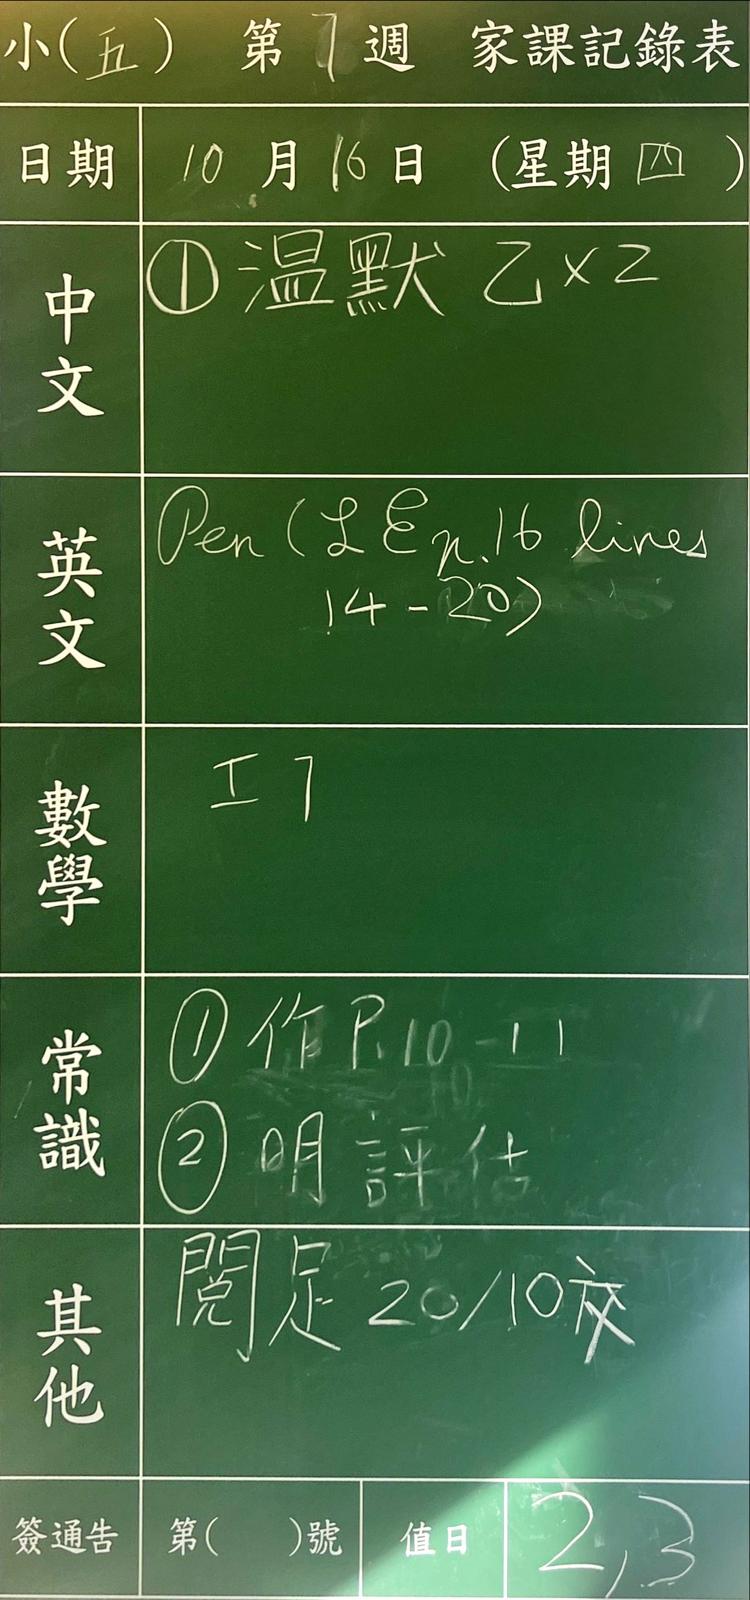 小(五) 第7週 家課記錄表
日期 10月16日 (星期四)
中文 ① 溫默 乙×2
英文 Pen (LE p.16 lines
14-20)
數學 工7
常識 ① 作 P.10-11
② 明評估
其他 閱足 20/10交
簽通告 第( )號 值日 2,3